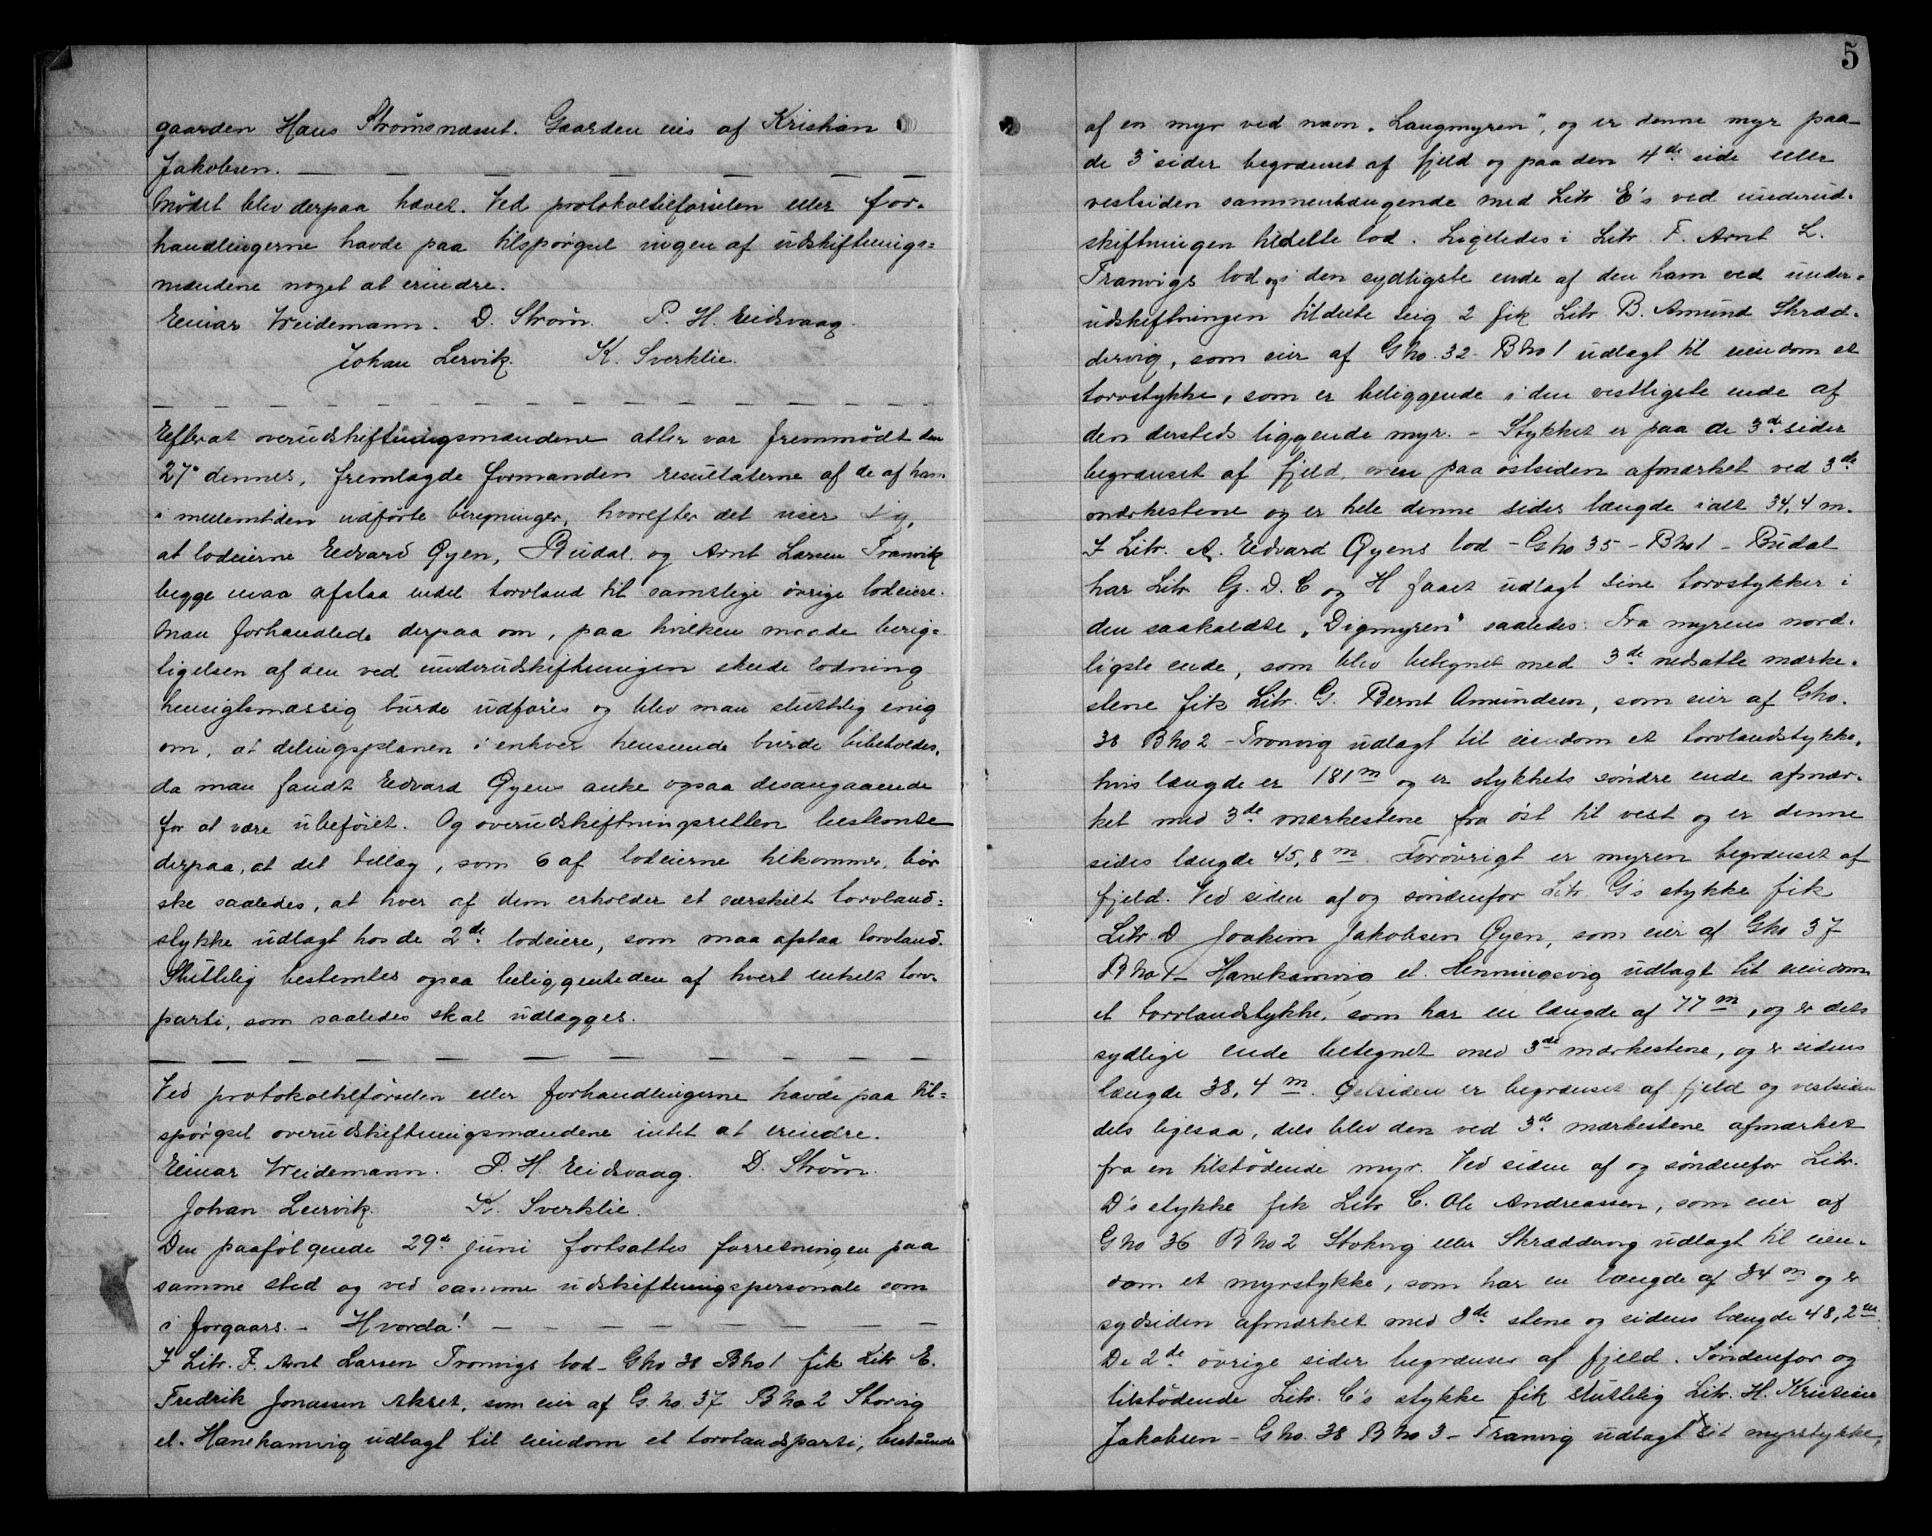 gaarden Hans Strømsnæsset. Gaarden eies af Kristian
Jakobsen.
Mødet blev derpaa hævet. Ved protokoltilførselen eller for-
handlingerne havde paa tilspørgsel ingen af udskiftnings=
mændene noget at erindre.
Einar Weidemann. D. Strøm. P. H. Eidsvaag.
Johan Lervik. K. Sverklie.
Efterat overudskiftningsmændene atter var fremmødt den
27de dennes, fremlagde formanden resultaterne af de af ham
i mellemtiden udførte beregninger, hvorefter det viser sig,
at lodeierne Edvard Øyen, Budal og Arnt Larsen Tranvik
begge maa afstaa endel torvland til samtlige øvrige lodeiere.
Man forhandlede derpaa om, paa hvilken maade berig-
tigelsen af den ved underudskiftningen skede lodning
hensigtsmæssig burde udføres og blev man sluttelig enig
om, at delingsplanen i enhver henseende burde bibeholdes,
da man fandt Edvard Øyens anke ogsaa desangaaende
for at være ubeføiet. Og overudskiftningsretten bestemte
derpaa, at det tillæg, som 6 af lodeierne tilkommer, bør
ske saaledes, at hver af dem erholder et særskilt torvland=
stykke udlagt hos de 2de lodeiere, som maa afstaa torvland.
Sluttelig bestemtes ogsaa beliggenheden af hvert enkelt torv-
parti, som saaledes skal udlægges.
Ved protokoltilførselen eller forhandlingerne havde paa til=
spørgsel overudskiftningsmændene intet at erindre.
Einar Weidemann. P. H. Eidsvaag. D. Strøm.
Johan Leervik. K. Sverklie.
Den paafølgende 29de juni fortsattes forretningen paa
samme sted og ved samme udskiftningspersonale som
i forgaars. - Hvorda!
I Litr. F. Arnt Larsen Tronvigs lod - Gno 38 Bno 1 fik Litr. E.
Fredrik Jonassen Akset, som eier af G. no. 37 B no 2 Storvig
el. Hanekamvig udlagt til eiendom et torvlandsparti, bestående
5
af en myr ved navn „Langmyren", og er denne myr paa
de 3 sider begrænset af fjeld og paa den 4de side eller
vestsiden sammenhængende med Litr. E's ved underud-
skiftningen tildelte lod. Ligeledes i Litr. F. Arnt L.
Tranvigs lod og i den sydligste ende af den ham ved under-
udskiftningen tildelte teig 2 fik Litr B. Amund Skræd-
dervig, som eier af Gno. 32 Bno 1 udlagt til eiendom et
torvstykke, som er beliggende i den vestligste ende af
den dersteds liggende myr. - Stykket er paa de 3de sider
begrænset af fjeld, men paa østsiden afmærket ved 3de
mærkestene og er hele denne sides længde ialt 34,4 m.
I Litr. A. Edvard Øyens lod - Gno 35 - Bno 1 - Budal
har Litr G. D. C og H faaet udlagt sine torvstykker i
den saakaldte „Digmyren" saaledes: Fra myrens nord-
ligste ende, som blev betegnet med 3de nedsatte mærke-
stene fik Litr. G. Bernt Amundsen, som eier af Gno.
38 Bno 2 - Tronvig udlagt til eiendom et torvlandstykke,
hvis længde er 181 m og er stykkets søndre ende afmær-
ket med 3de mærkestene fra øst til vest og er denne
sides længde 45,8 m. Forøvrigt er myren begrænset af
fjeld. Ved siden af og søndenfor Litr G's stykke fik
Litr. D Joakim Jakobsen Øyen, som eier af Gno 37
Bno 1 - Hanekamvig el. Henningsvig udlagt til eiendom
et torvlandstykke, som har en længde af 77 m, og er dets
sydlige ende betegnet med 3de mærkestene, og er sidens
længde 38,4 m. Østsiden er begrænset af fjeld og vestsiden
dels ligesaa, dels blev den ved 3de mærkestene afmærket
fra en tilstødende myr. Ved siden af og søndenfor Litr.
D's stykke fik Litr C. Ole Andreassen, som eier af
Gno 36 Bno 2 Stokvig eller Skræddervig udlagt til eien-
dom et myrstykke, som har en længde af 84 m og er
sydsiden afmærket med 3de stene og sidens længde 48,2 m.
De 2de øvrige sider begrænses af fjeld. Søndenfor og
tilstødende Litr. C's stykke fik sluttelig Litr. H. Kristian
Jakobsen - Gno. 38 Bno 3 - Tranvig udlagt sit myrstykke,